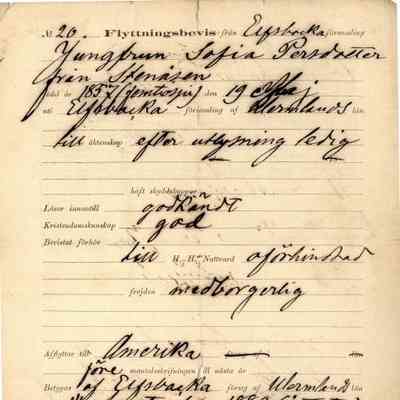 № 20. Flyttningsbevis från Elfsbacka församling
Jungfrun Sofia Persdotter
från Stenåsen
född år 1857 (femtiosju) den 19 Maj
uti Elfsbacka församling af Wermlands län
till äktenskap efter utlysning ledig
haft skyddskoppor
Läser innantill godkändt
Kristendomskunskap god
Bevistat förhör
till H. H. Nattvard oförhindrad
frejden medborgerlig
Afflyttar till Amerika län
före mantalsskrifningen till nästa år
Betygar af Elfsbacka försg af Wermlands län